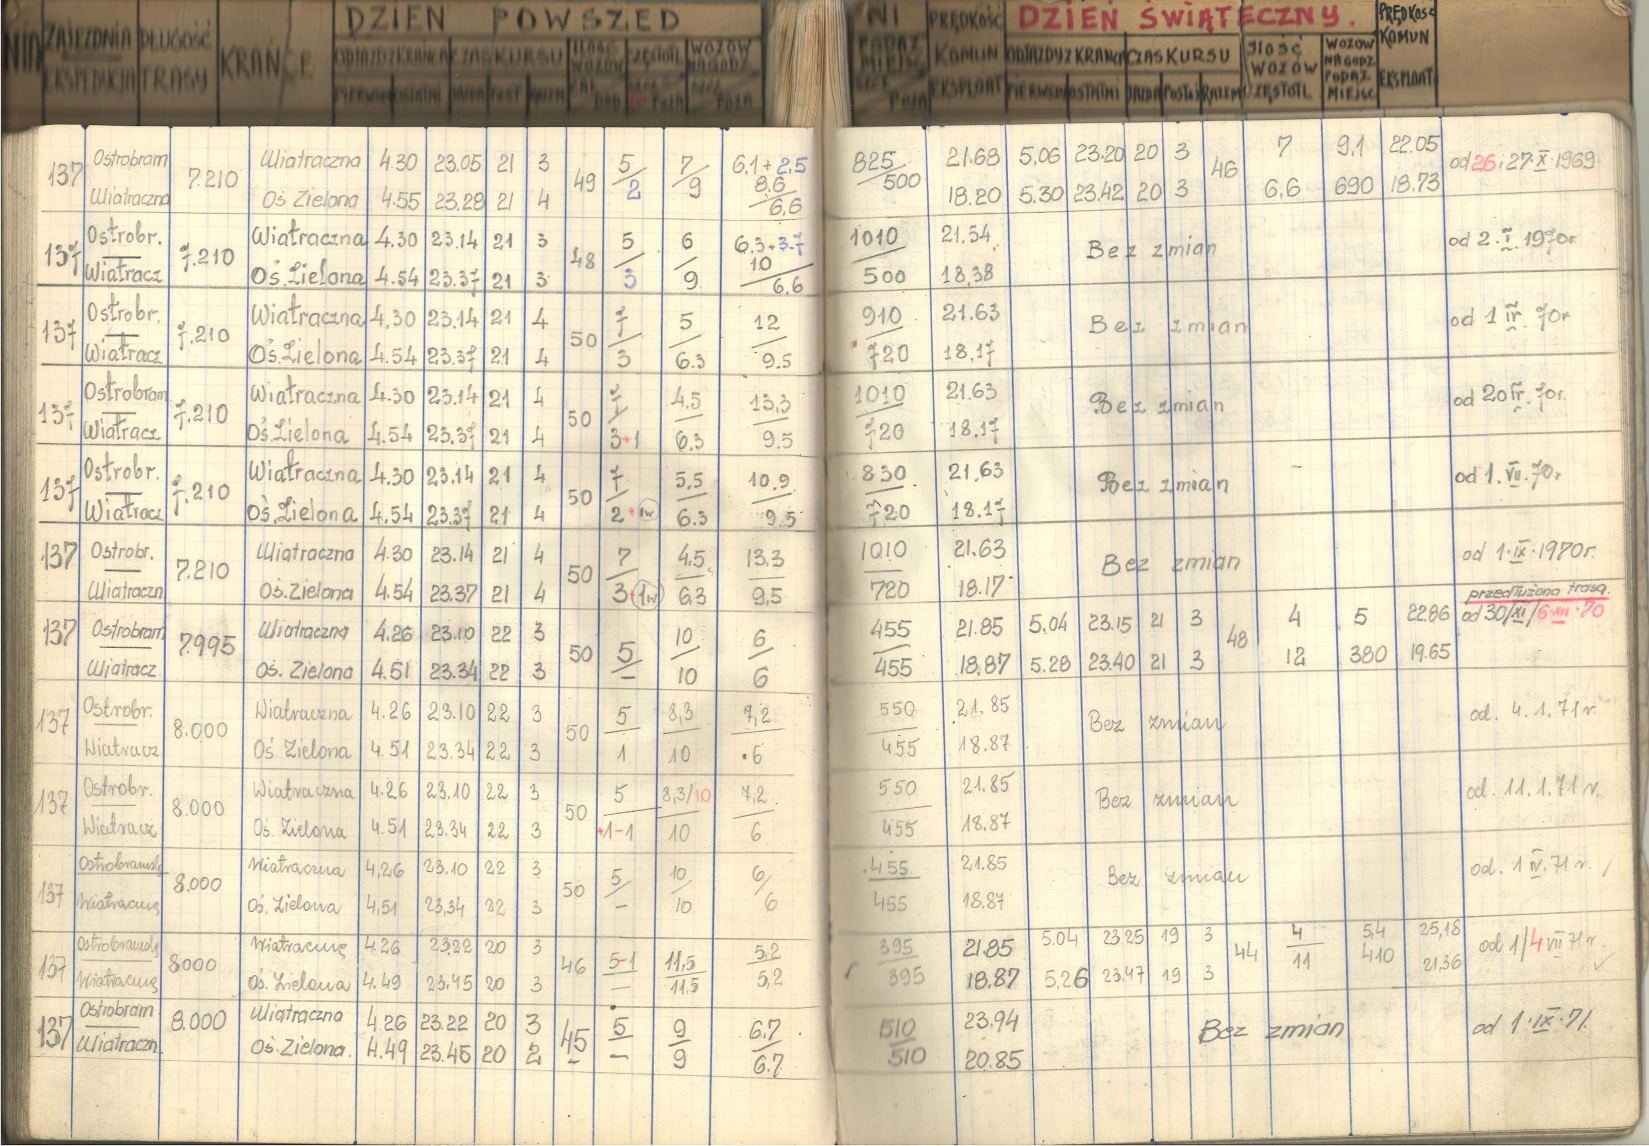 DZIEŃ POWSZED NI PRĘDKOŚĆ DZIEŃ ŚWIĄTECZNY. PRĘDKOŚĆ
NIA ZAJEZDNIA DŁUGOŚĆ KRAŃCE ODJAZDY Z KRAŃCA CZAS KURSU ILOŚĆ WOZÓW CZĘSTOTL WOZÓW NA GODZ PODAŻ MIEJSC KOMUN ODJAZDY Z KRAŃCA CZAS KURSU ILOŚĆ WOZÓW WOZÓW NA GODZ KOMUN
EKSPEDYCJA TRASY PIERWSZ OSTATNI JAZDA POST RAZEM POZA POZA POZA EKSPLOAT PIERWSZ OSTATNI JAZDA POSTÓJ RAZEM CZĘSTOTL PODAŻ MIEJSC EKSPLOAT
137 Ostrobram 7.210 Wiatraczna 4.30 23.05 21 3 49 5 7 6,1+2,5 8,6 825 21.68 5.06 23.20 20 3 46 7 9,1 22.05 od 26 i 27·X·1969
Wiatraczna Oś Zielona 4.55 23.28 21 4 2 9 6,6 500 18.20 5.30 23.42 20 3 6,6 690 18.73
137 Ostrobr. 7.210 Wiatraczna 4.30 23.14 21 3 48 5 6 6.3+3.7 10 1010 21.54 Bez zmian od 2.I.1970r
Wiatracz Oś.Zielona 4.54 23.37 21 3 3 9 6,6 500 18,38
137 Ostrobr. 7.210 Wiatraczna 4,30 23.14 21 4 50 7 5 12 910 21.63 Bez zmian od 1 IV 70r
Wiatracz Oś.Zielona 4.54 23.37 21 4 3 6.3 9.5 720 18,17
137 Ostrobram 7.210 Wiatraczna 4.30 23.14 21 4 50 7 4.5 13,3 1010 21.63 Bez zmian od 20 IV. 70r.
Wiatracz Oś.Zielona 4.54 23.37 21 4 3+1 6.3 9.5 720 18,17
137 Ostrobr. 7.210 Wiatraczna 4.30 23.14 21 4 50 7 5,5 10.9 830 21,63 Bez zmian od 1. VII. 70r
Wiatracz Oś.Zielona 4.54 23.37 21 4 2+1w 6.3 9.5 720 18.17
137 Ostrobr. 7.210 Wiatraczna 4.30 23.14 21 4 50 7 4,5 13,3 1010 21.63 Bez zmian od 1·IX·1970r.
Wiatraczn Oś.Zielona 4.54 23.37 21 4 3+1w 6,3 9,5 720 18.17
przedłużona trasa.
137 Ostrobram 7.995 Wiatraczna 4.26 23.10 22 3 50 5 10 6 455 21.85 5.04 23.15 21 3 48 4 5 22.86 od 30/XI/6·XII·70
Wiatracz Oś. Zielona 4.51 23.34 22 3 – 10 6 455 18,87 5.28 23.40 21 3 12 380 19.65
137 Ostrobr. 8.000 Wiatraczna 4.26 23.10 22 3 50 5 8,3 7,2 550 21.85 Bez zmian od. 4.1.71r
Wiatracz Oś Zielona 4.51 23.34 22 3 1 10 6 455 18.87
137 Ostrobr. 8.000 Wiatraczna 4.26 23.10 22 3 50 5 8,3/10 7,2 550 21.85 Bez zmian od. 11.1.71 r.
Wiatracz Oś. Zielona 4.51 23.34 22 3 +1-1 10 6 455 18.87
137 8.000 Wiatraczna 4,26 23.10 22 3 50 5 10 6 455 21.85 Bez zmian od. 1 IV.71 r.
Oś. Zielona 4,51 23,34 22 3 – 10 6 455 18.87
137 8000 4.26 23.22 20 3 46 5-1 11,5 5,2 395 21.85 5.04 23.25 19 3 44 4 5,4 25,18 od 1/4 VII 71r.
Oś. Zielona 4.49 23.45 20 3 – 11,5 5,2 395 18.87 5,26 23.47 19 3 11 410 21.36
137 Ostrobram 8.000 Wiatraczna 4.26 23.22 20 3 45 5 9 6.7 510 23.94 Bez zmian od 1·IX·71.
Wiatraczn. Oś.Zielona. 4.49 23.45 20 2 – 9 6.7 510 20.85